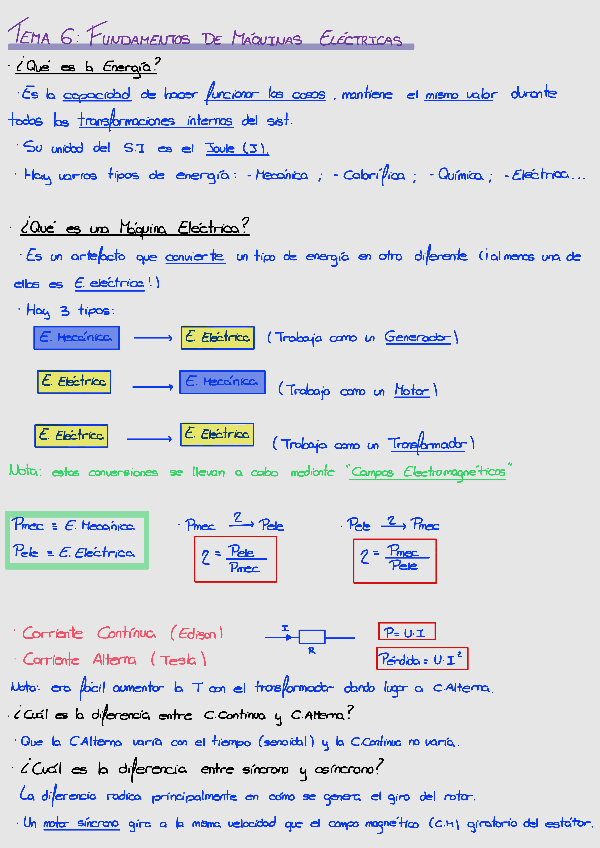 TEMA 6: FUNDAMENTOS DE MÁQUINAS ELÉCTRICAS
· ¿Qué es la Energía?
· Es la capacidad de hacer funcionar las cosas, mantiene el mismo valor durante
todas las transformaciones internas del sist.
· Su unidad del S.I es el Joule (J).
· Hay varios tipos de energía: - Mecánica ; - Calorífica ; - Química ; - Eléctrica...
· ¿Qué es una Máquina Eléctrica?
· Es un artefacto que convierte un tipo de energía en otro diferente (¡al menos una de
ellas es E. eléctrica!)
· Hay 3 tipos:
E. Mecánica → E. Eléctrica (Trabaja como un Generador)
E. Eléctrica → E. Mecánica (Trabaja como un Motor)
E. Eléctrica → E. Eléctrica (Trabaja como un Transformador)
Nota: estas conversiones se llevan a cabo mediante "Campos Electromagnéticos"
Pmec ≡ E. Mecánica · Pmec η→ Pele · Pele η→ Pmec
Pele ≡ E. Eléctrica η = Pele/Pmec η = Pmec/Pele
· Corriente Contínua (Edison) I R P = U·I
· Corriente Alterna (Tesla) Pérdida = U·I²
Nota: era fácil aumentar la T con el transformador dando lugar a C.Alterna.
· ¿Cuál es la diferencia entre C.Continua y C.Alterna?
· Que la C.Alterna varía con el tiempo (senoidal) y la C.Continua no varía.
· ¿Cuál es la diferencia entre síncrono y asíncrono?
La diferencia radica principalmente en cómo se genera el giro del rotor.
· Un motor síncrono gira a la misma velocidad que el campo magnético (C.M) giratorio del estátor.